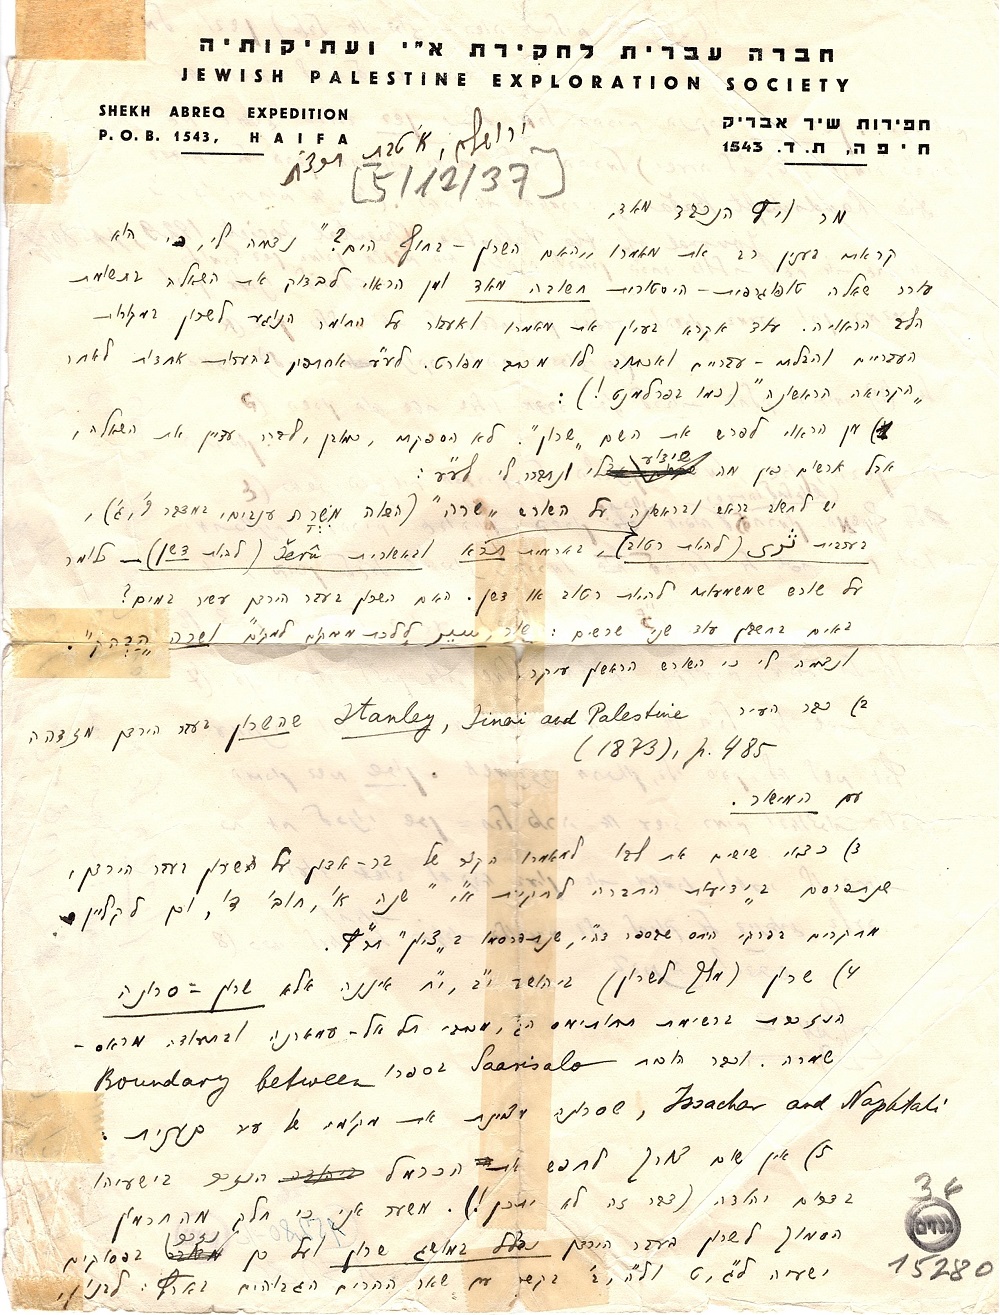 חברה עברית לחקירת א"י ועתיקותיה
JEWISH PALESTINE EXPLORATION SOCIETY
SHEKH ABREQ EXPEDITION
P.O.B. 1543, HAIFA
חפירות שיך אבריק
חיפה, ת. ד. 1543
ירושלים, א' טבת תרצ"ח
[5/12/37]
מר הנכבד מאד,
קראתי בענין רב את מאמרו "האם השרון – בחוף הים?" נדמה לי, כי הוא
עורר שאלה טופוגרפית-היסטורית חשובה מאד ומן הראוי לבדוק את השאלה בתשומת
הלב הראויה. עוד אקרא בעיון את מאמרו ואעבור על החומר הנוגע לשרון במקורות
העבריים והבלתי-עבריים ואכתוב לו מכתב מפורט. לע"ע אסתפק בהערות אחדות לאחר
"הקריאה הראשונה" (כמו בפרלמנט!):
1) מן הראוי לפרש את השם "שרון". לא הספקתי, כמובן, לברר עדיין את השאלה,
אבל ארשום כאן מה שידוע לי ונתברר לי לע"ע:
יש לחשוב בראש ובראשונה על השורש "שרה" (השוה מִשְׁרַת ענבים, במדבר ו', ג'),
בערבית (להיות רטוב), בארמית תרא ובאשורית šerû (להיות דשן) כלומר
על שורש שמשמעותו להיות רטוב או דשן. האם השרון בעבר הירדן עשיר במים?
באים בחשבון עוד שני שרשים: שור, ללכת ממקום למקום" ושרה "הבהק".
ונדמה לי כי השורש הראשון עיקר.
2) כבר העיר Stanley, Sinai and Palestine שהשרון בעבר הירדן מזדהה
(1873), p. 485
עם המישור.
3) כדאי שישים את לבו למאמרו הקצר של בר-אדון על השרון בעבר הירדן,
שנתפרסם ב"ידיעות החברה לחקירת א"י" שנה א', חוב' ד', וכן לקליין
מחקרים בפרקי היחס שבספר דה"י, שנתפרסמו ב"ציון" תר"ץ.
4) שרון (מלך לשרון) ביהושע י"ב, י"ח איננה אלא שרון = סרונה
הנזכרת ברשימת תחותימס הג', מכתבי תל אל-עמארנה ובתעודה מראס-
שמרה. וכבר הוכח Saarisalo בספרו Boundary between
Issachar and Naphtali, שסרונה מציינת את מקומה של עיר כנענית.
5) אין שום צורך לחפש את הכרמל הנזכר בישעיהו
בדרום יהודה (דבר זה לא יתכן!). משער אני כי חלק מהחרמון
הסמוך לשרון בעבר הירדן נכלל במושג שרון ועל כן נזכר בפסוקים
ישעיה ל"ג, ט ול"ה, ב' בקשר עם שאר ההרים הגבוהים בארץ: לבנון,
34
15280